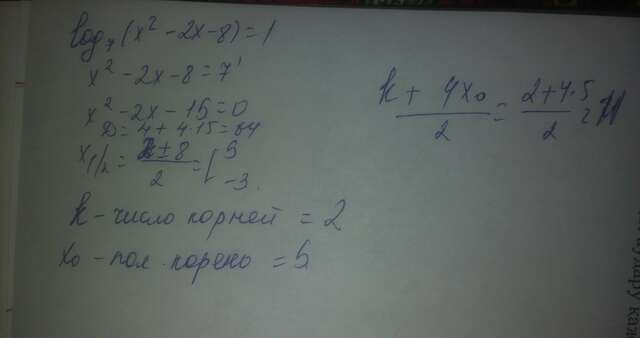 log₇(x² - 2x - 8) = 1
x² - 2x - 8 = 7¹
x² - 2x - 15 = 0
D = 4 + 4·15 = 64
x₁/₂ = (2 ± 8)/2 = [5
-3.
k - число корней = 2
x₀ - пол. корень = 5
(k + 4x₀)/2 = (2 + 4·5)/2 = 11